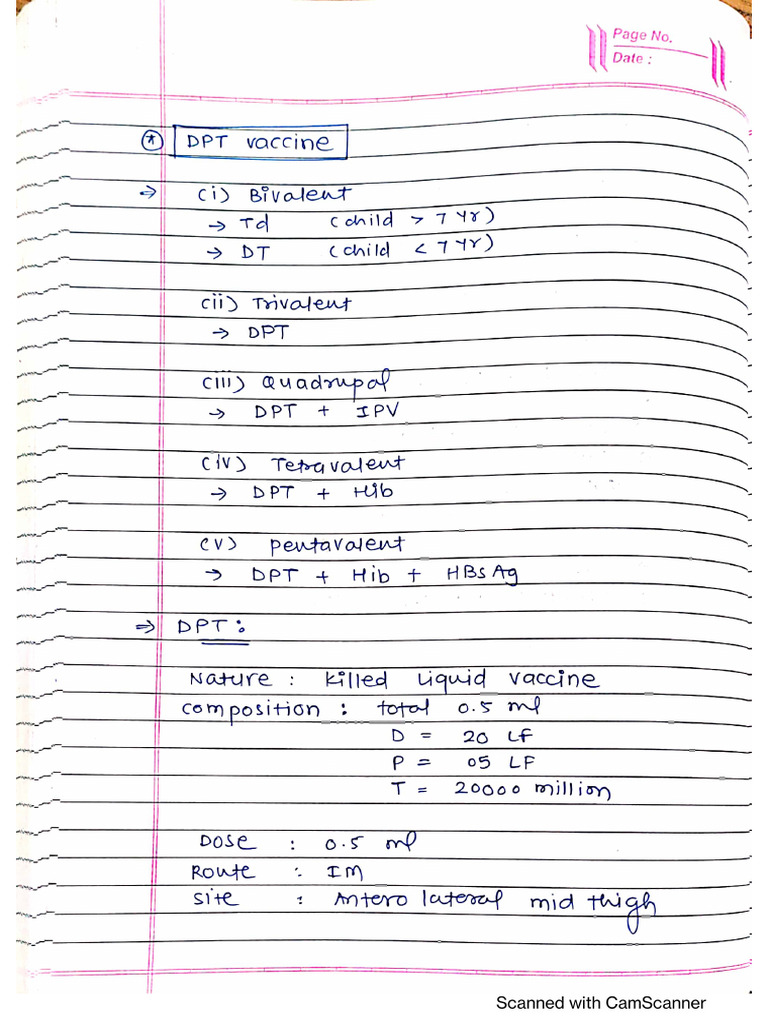 Page No.
Date :
* DPT vaccine
⇒ (i) Bivalent
→ Td (child > 7 yr)
→ DT (child < 7 yr)
(ii) Trivalent
→ DPT
(iii) Quadrupal
→ DPT + IPV
(iv) Tetravalent
→ DPT + Hib
(v) pentavalent
→ DPT + Hib + HBsAg
⇒ DPT :
Nature : killed liquid vaccine
composition : total 0.5 ml
D = 20 LF
P = 05 LF
T = 20000 million
Dose : 0.5 ml
Route : IM
Site : Antero lateral mid thigh
Scanned with CamScanner